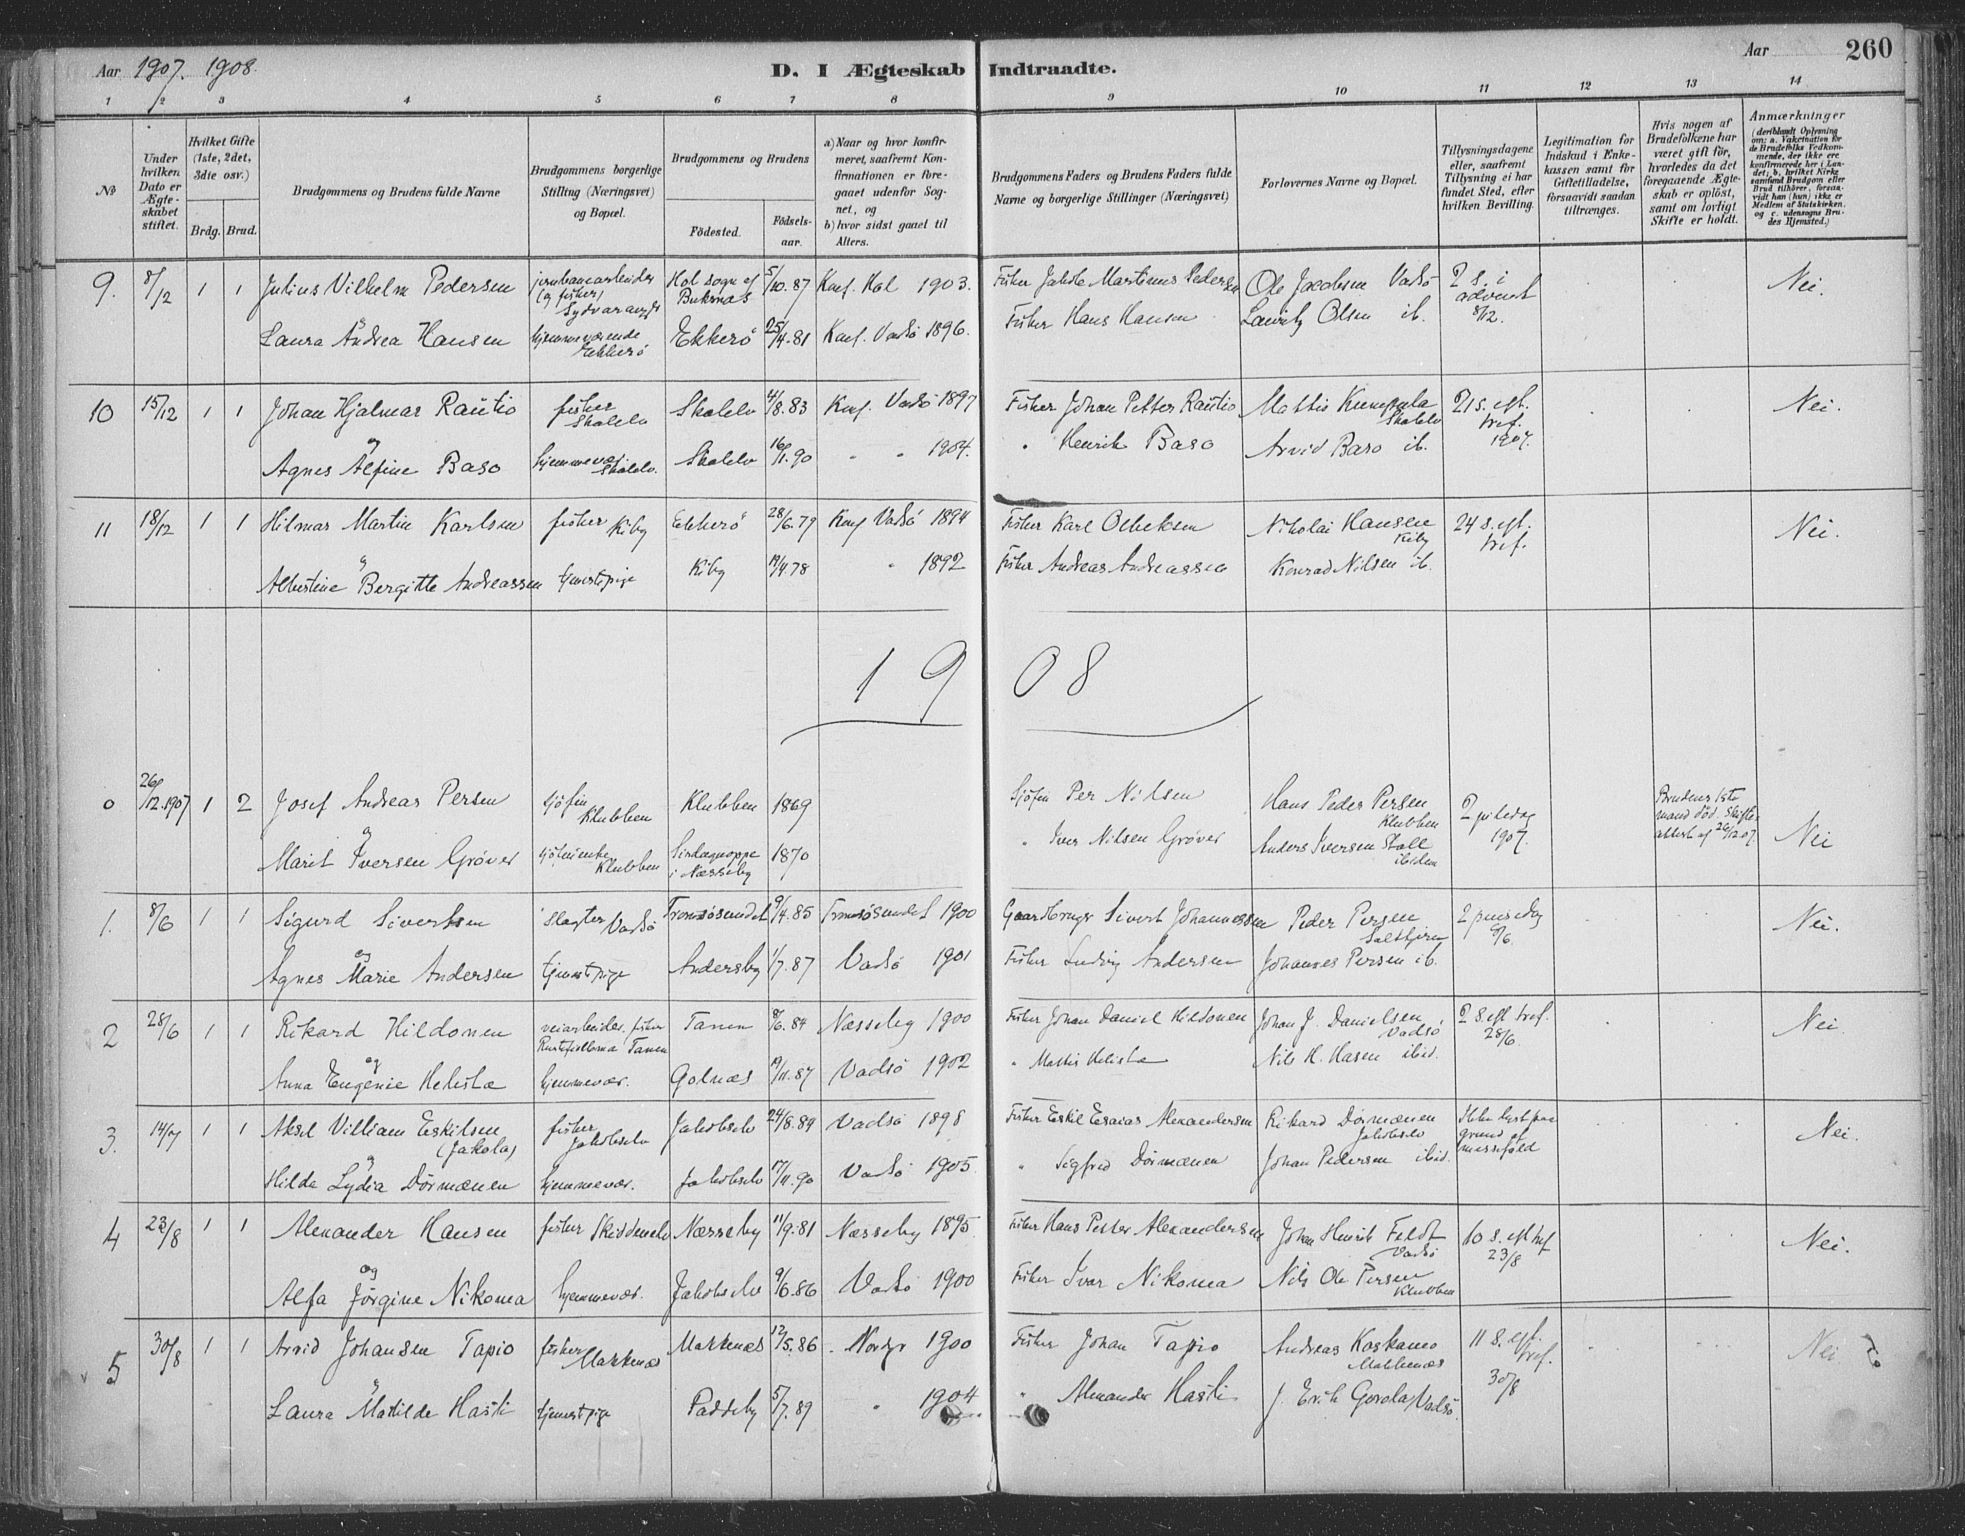 Aar 1907. 1908.
D. I Ægteskab Indtraadte.
Aar 260
1 2 3 4 5 6 7 8 9 10 11 12 13 14
No
Under hvilken Dato er Ægteskabet stiftet.
Hvilket Gifte (1ste, 2det, 3die osv.)
Brdg. Brud.
Brudgommens og Brudens fulde Navne
Brudgommens borgerlige Stilling (Næringsvei) og Bopæl.
Brudgommens og Brudens
Födested. Födselsaar.
a) Naar og hvor konfirmeret, saafremt Konfirmationen er foregaaet udenfor Sognet, og
b) hvor sidst gaaet til Alters.
Brudgommens Faders og Brudens Faders fulde Navne og borgerlige Stillinger (Næringsvei)
Forlovernes Navne og Bopæl.
Tillysningsdagene eller, saafremt Tillysning ei har fundet Sted, efter hvilken Bevilling.
Legitimation for Indskud i Enkekassen samt for Giftetilladelse, forsaavidt saadan tiltrænges.
Hvis nogen af Brudefolkene har været gift för, hvorledes da det foregaaende Ægteskab er oplöst, samt om lovligt Skifte er holdt.
Anmærkninger
(deriblandt Oplysning om: a. Vakcination for de Brudefolks Vedkommende, der ikke ere konfirmerede her i Landet; b. hvilket Kirkesamfund Brudgom eller Brud tilhörer, forsaavidt han (hun) ikke er Medlem af Statskirken, og c. udensogns Brudes Hjemsted.)
9. 8/12 1 1 Julius Vilhelm Pedersen jernbanearbeider (og fisker) Sydvaranger Hol sogn af Buksnæs 5/10.87 Konf. Hol 1903. Fisker Jakob Martinus Pedersen Ole Jacobsen Vadsö 2 s. i advent 8/12. Nei.
og
Laura Andrea Hansen hjemmeværende Ekkerö Ekkerö 25/4.81 Konf. Vadsö 1896. Fisker Hans Hansen Lauritz Olsen ib.
10 15/12 1 1 Johan Hjalmar Rautio fisker Skalelv Skalelv 4/8.83 Konf. Vadsö 1897 Fisker Johan Petter Rautio Mattis Skalelv 21 s. eft. tref. 1907. Nei.
og
Agnes Alfine Baso hjemmevær. Skalelv. Skalelv 16/11.90 " " 1904. " Henrik Baso Arvid Baso ib.
11 18/12 1 1 Hilmar Martin Karlsen fisker Kiby Ekkerö 28/6.79 Konf Vadsö 1894 Fisker Karl Nikolai Hansen Kiby 24 s. eft. tref. Nei.
og
Albertine Bergitte Andreassen tjenestpige Kiby /4.78 " 1892 Fisker Andreas Andreassen Konrad Nilsen ib.
1908
0 26/12.1907 1 2 Josef Andreas Persen sjöfin Klubben Klubben 1869 Sjöfin Per Nilsen Hans Peder Persen Klubben 2 juledag 1907. Brudens 1ste mand död. Skifteattest af 26/12 07. Nei
og
Marit Iversen Gröver Klubben i Næsseby 1870 " Iver Nilsen Gröver Anders Iversen Stall ibidem
1. 8/6 1 1 Sigurd Sivertsen slagter Vadsö Tromsösundet 9/4.85 Tromsösundet 1900 Gaardbruger Sivert Johannessen Peder Persen 2 pinsedag 8/6. Nei.
og
Agnes Marie Andersen tjenestpige Andersby 1/7.87 Vadsö 1901 Fisker Ludvig Andersen Johannes Persen ib.
2 28/6 1 1 Rikard Hildonen veiarbeider, fisker Rustefjelbma Tanen Tanen /6.84 Næsseby 1900 Fisker Johan Daniel Hildonen Johan J. Danielsen Vadsö 2 S. eft tref. 28/6. Nei
og
Anna Eugenie Helista hjemmevær. Golnæs 19/11.87 Vadsö 1902 " Mattis Helista Nils H. Hasen ibid.
3. 14/7 1 1 Aksel Villiam Eskilsen (Jakola) fisker Jakobselv Jakobselv 24/8.89 Vadsö 1898 Fisker Eskil Esaias Alexandersen Rikard Dörmænen Jakobselv Ikke lyst paa grund af messefald Nei.
og
Hilda Lydia Dörmænen hjemmevær. Jakobselv 17/11.90 Vadsö 1905 " Sigfred Dörmænen Johan Pedersen ibid.
4 23/8 1 1 Alexander Hansen fisker Skiddenelv Næsseby 11/9.81 Næsseby 1895 Fisker Hans Petter Alexandersen Johan Henrik Feldt Vadsö 10 s. eft tref 23/8 Nei.
og
Alfa Jörgine Nikoma hjemmevær. Jakobselv 9/6.86 Vadsö 1900 Fisker Ivar Nikoma Nils Ole Persen Klubben
5 30/8 1 1 Arvid Johansen Tapio fisker Makkenæs Makkenæs 12/5.86 1900 Fisker Johan Tapio Andreas Koskamo Makkenæs 11 S. eft. tref. 30/8 Nei
og
Laura Matilde Hasti tjenestpige Paddeby 5/7.89 " 1904 " Alexander Hasti J. Erik Vadsö.